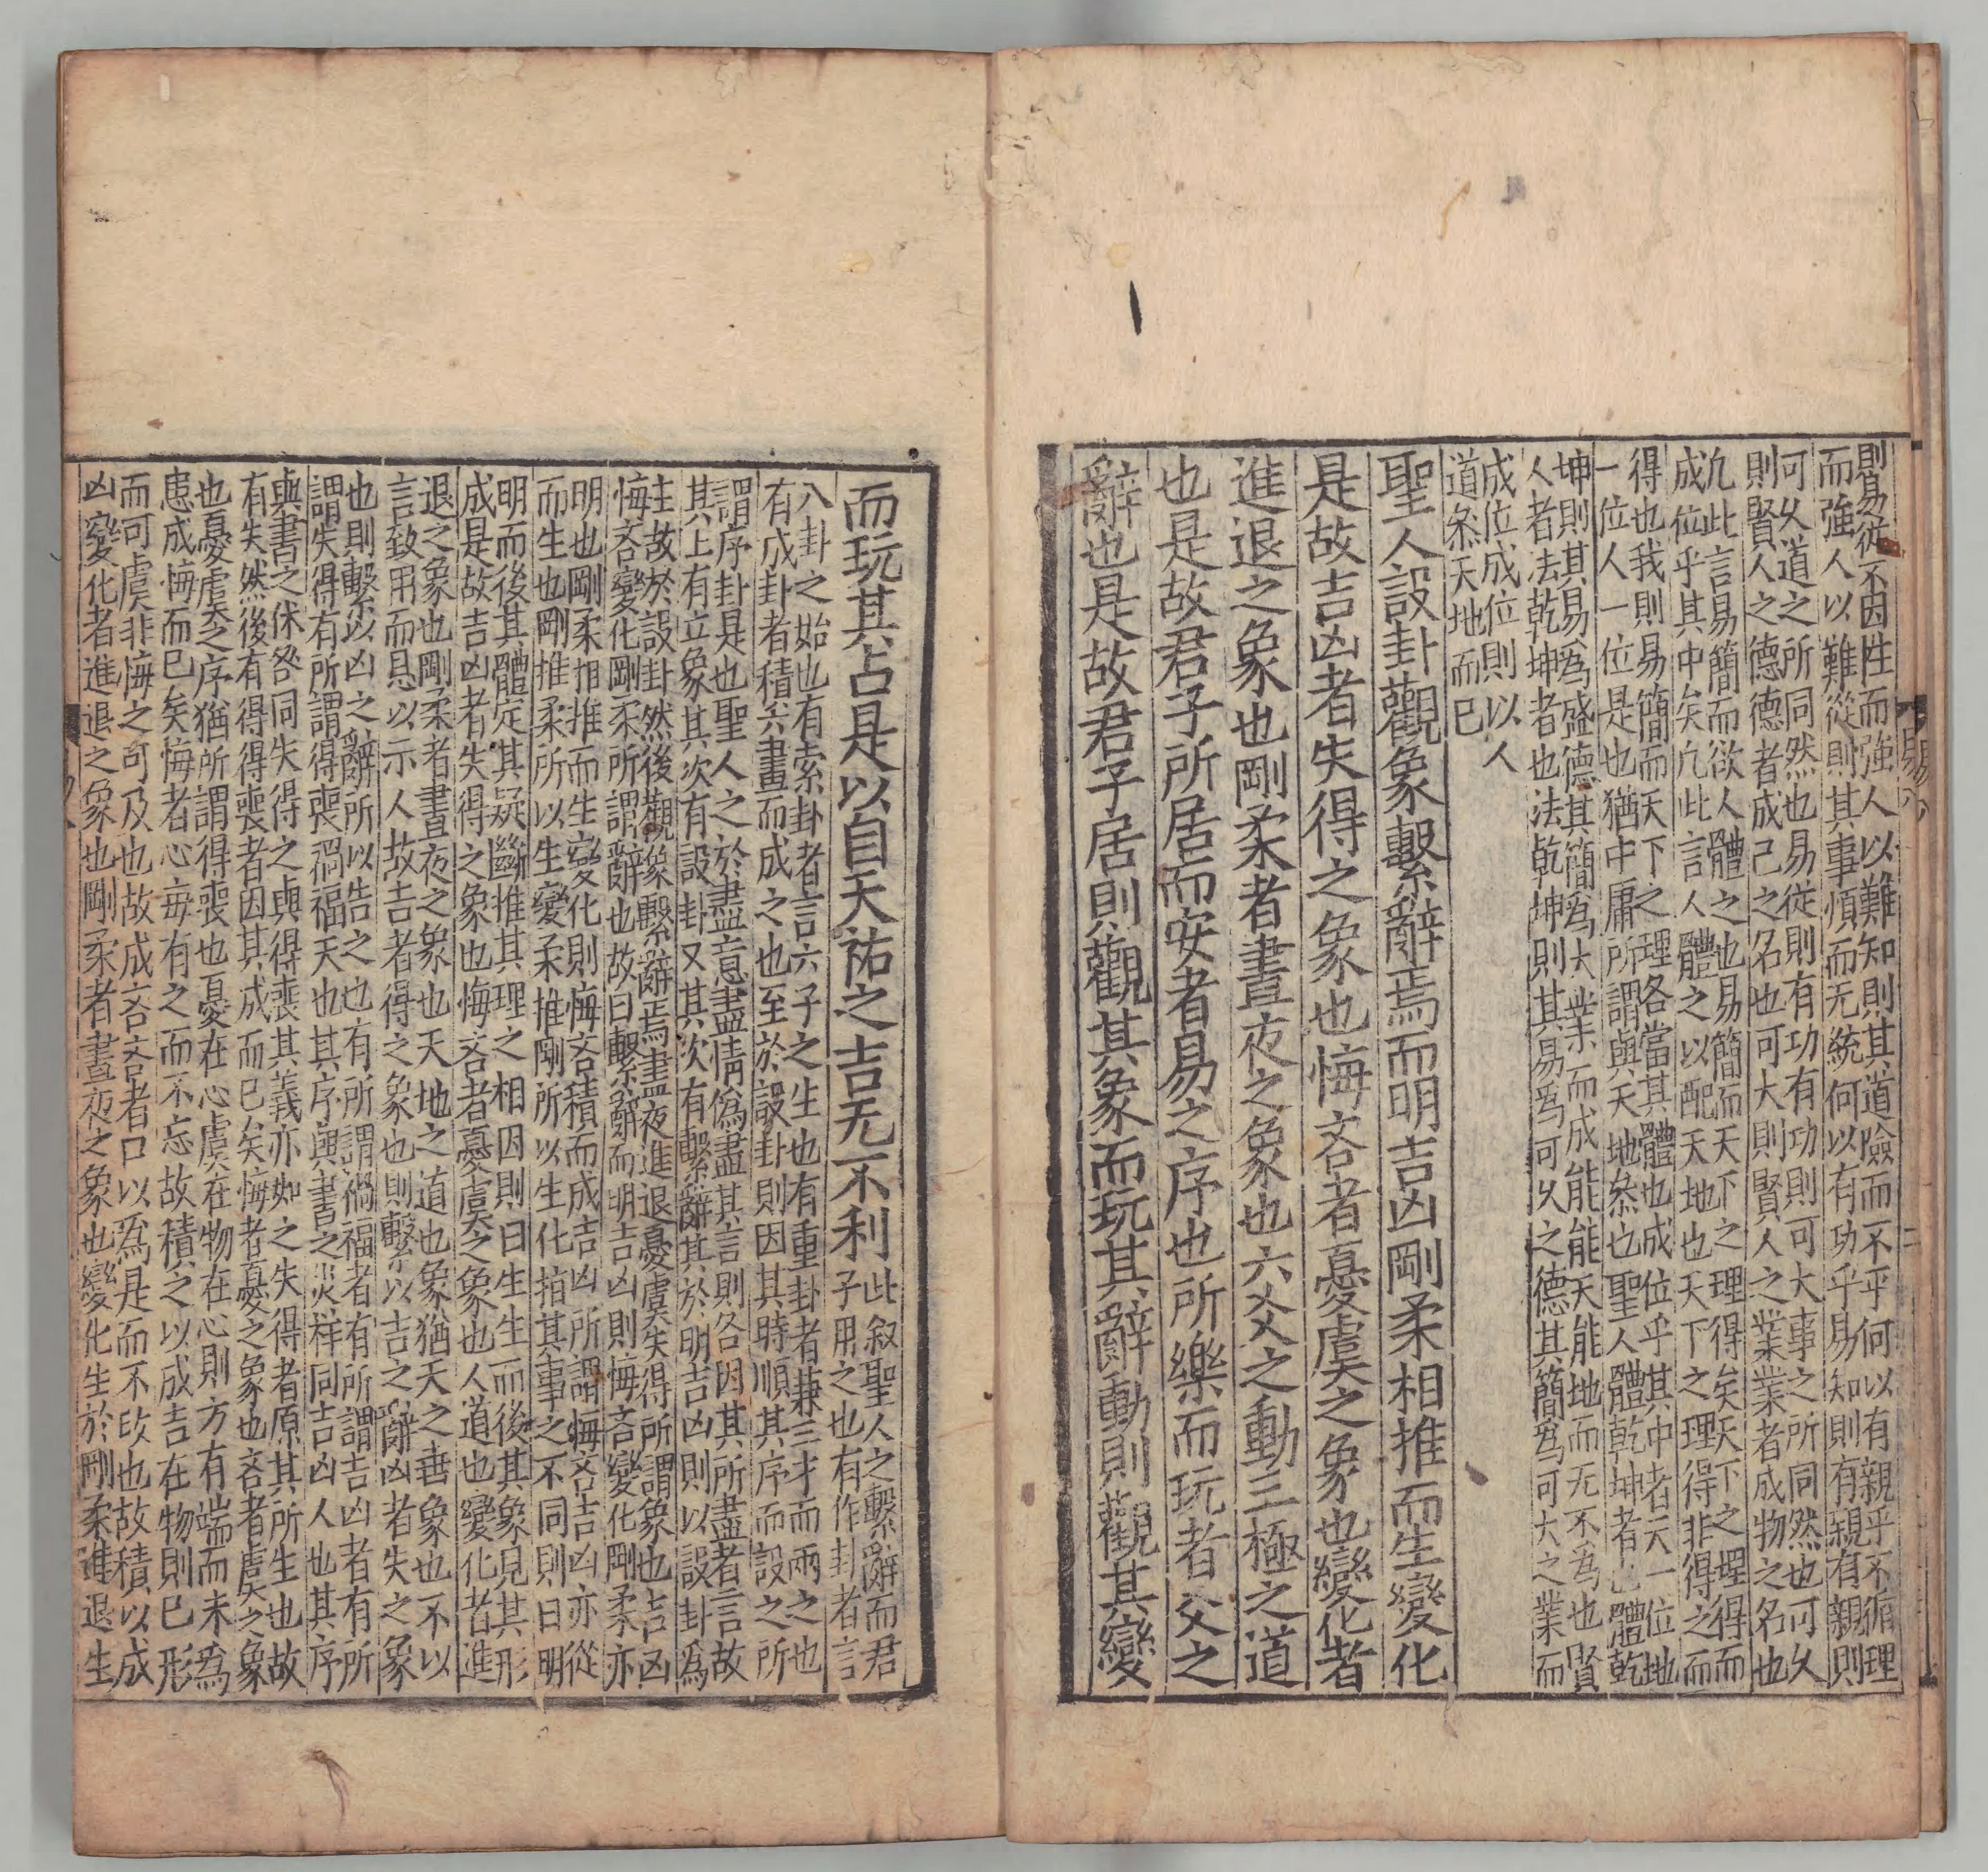 則易從不因性而強人以難知則其道險而不乎何以有親乎不循理
而強人以難從則其事煩而无統何以有功乎易知則有親有親則
可乆道之所同然也易從則有功有功則可大事之所同然也可乆
則賢人之德德者成己之名也可大則賢人之業業者成物之名也
凢此言易簡而欲人體之也易簡而天下之理得矣天下之理得而
成位乎其中矣凢此言人體之以配天地也天下之理得非得之而
得也我則易簡而天下之理各當其體也成位乎其中者天一位地
一位人一位是也猶中庸所謂與天地叅也聖人體乾坤者也體乾
坤則其易爲盛德其簡爲大業而成能能天能地而无不爲也賢
人者法乾坤者也法乾坤則其易爲可乆之德其簡爲可大之業而
成位成位則以人
道叅天地而已
聖人設卦觀象繫辭焉而明吉凶剛柔相推而生變化
是故吉凶者失得之象也悔吝者憂虞之象也變化者
進退之象也剛柔者晝夜之象也六爻之動三極之道
也是故君子所居而安者易之序也所樂而玩者爻之
辭也是故君子居則觀其象而玩其辭動則觀其變
而玩其占是以自天祐之吉无不利
此叙聖人之繫辭而君
子用之也有作卦者言
八卦之始也有索卦者言六子之生也有重卦者兼三才而兩之也
有成卦者積六畫而成之也至於設卦則因其時順其序而設之所
謂序卦是也聖人之於盡意盡情僞盡其言則各因其所盡者言故
其上有立象其次有設卦又其次有繫辭其於明吉凶則以設卦爲
主故於設卦然後觀象繫辭焉盡夜進退憂虞失得所謂象也吉凶
悔吝變化剛柔所謂辭也故曰繫辭而明吉凶則悔吝變化剛柔亦
明也剛柔相推而生變化則悔吝積而成吉凶所謂悔吝吉凶亦從
而生也剛推柔所以生變柔推剛所以生化拍其事之不同則曰明
明而後其體定其疑斷推其理之相因則曰生生而後其象見其形
成是故吉凶者失得之象也悔吝者憂虞之象也人道也變化者進
退之象也剛柔者晝夜之象也天地之道也象猶天之垂象也不以
言致用而息以示人故吉者得之象也則繫以吉之辭凶者失之象
也則繫以凶之辭所以告之也有所謂禍福者有所謂吉凶者有所
謂失得有所謂得喪禍福天也其序與書之災祥同吉凶人也其序
與書之休咎同失得之與得喪其義亦如之失得者原其所生也故
有失然後有得得喪者因其成而已矣悔者憂之象也吝者虞之象
也憂虞之序猶所謂得喪也憂在心虞在物在心則方有端而未爲
患成悔而已矣悔者心毎有之而不忘故積之以成吉在物則已形
而可虞非悔之可及也故成吝吝者口以爲是而不改也故積以成
凶變化者進退之象也剛柔者晝夜之象也變化生於剛柔進退生